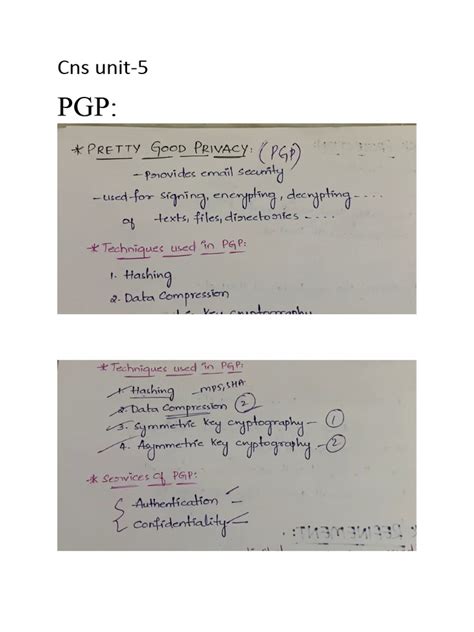 Cns unit-5
PGP:
* PRETTY GOOD PRIVACY: (PGP)
- provides email security
- used for signing, encrypting, decrypting ----
of texts, files, directories ----
* Techniques used in PGP:
1. Hashing
2. Data Compression
key cryptography
* Techniques used in PGP:
1. Hashing - MD5, SHA
2. Data Compression (2)
3. Symmetric key cryptography - (1)
4. Asymmetric key cryptography - (2)
* Services of PGP:
Authentication
Confidentiality